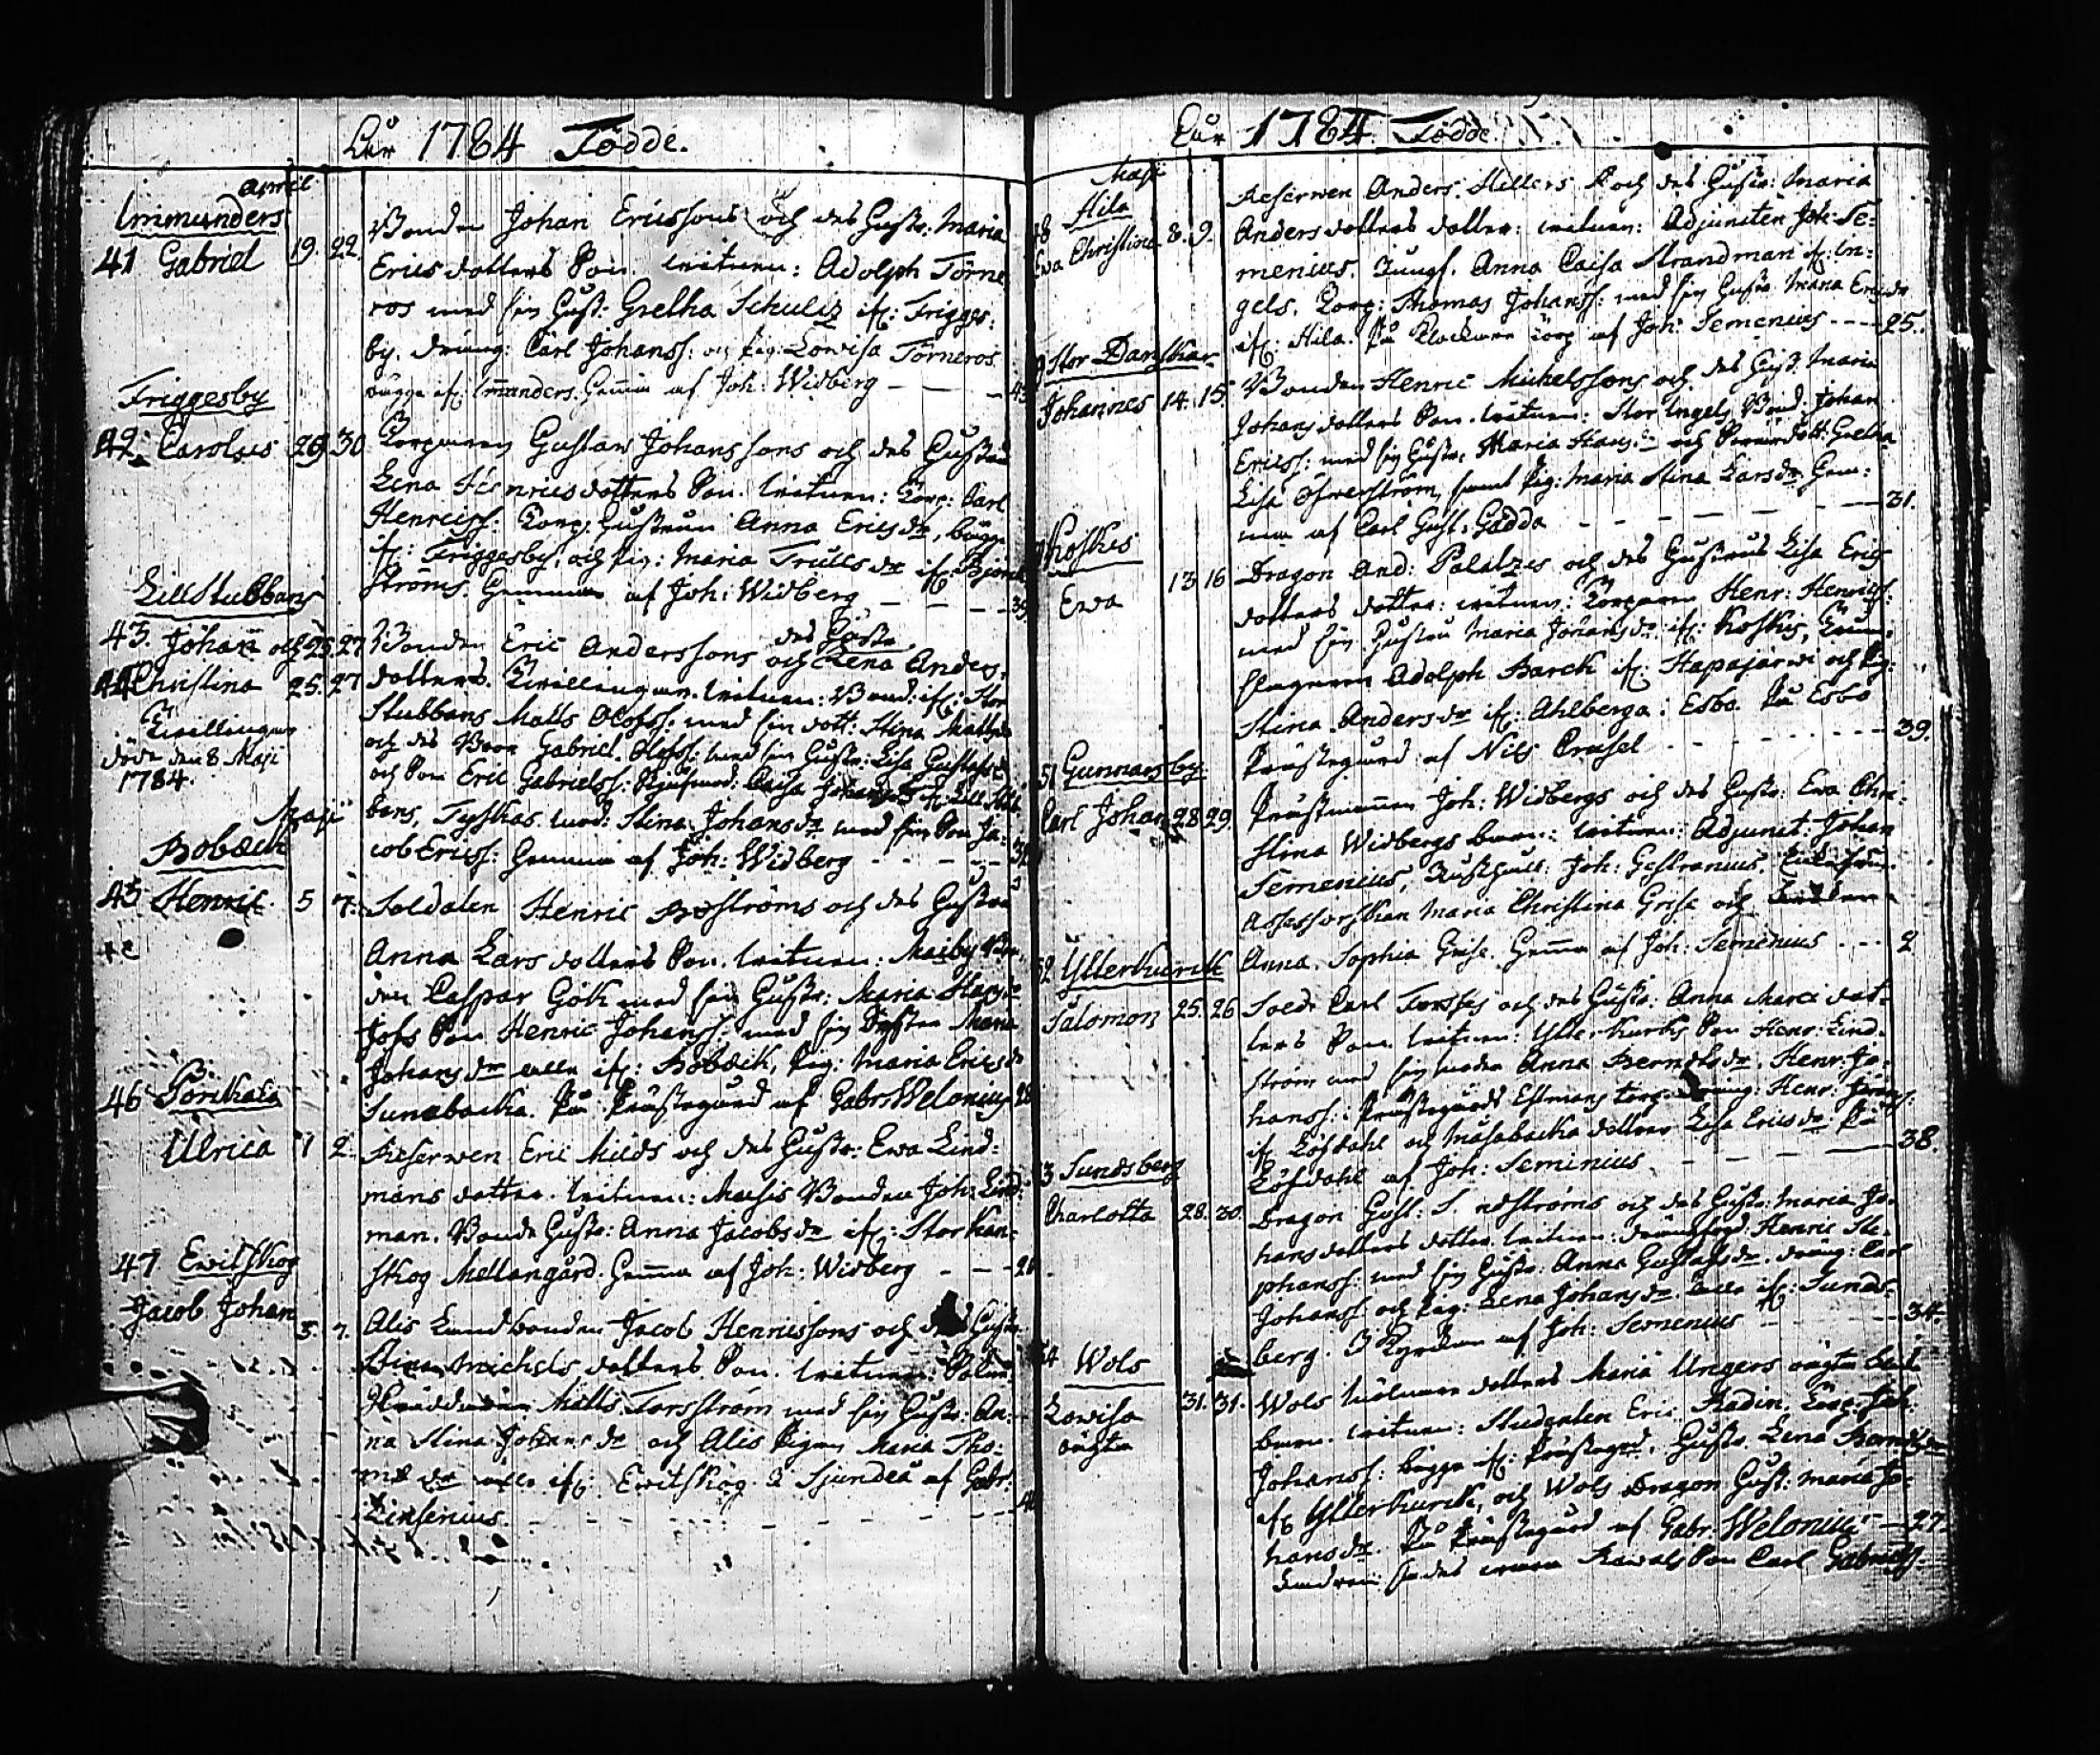 Åår 1784 Födde.
April
Immunders
41 Gabriel 19. 22. Bonden Johan Erissons och des Hustr: Maria
Erics dotters Son. Witnen: Adolph Törne
ros med sin Hust: Gretha Schultz if: Frigges:
by. dräng: Carl Johanss: och Pig: Lowisa Törneros
bägge if: Immunders. Hemma af Joh: Widberg
Friggesby
42. Carolus 29 30 Torparen Gustav Johanssons och des Hustrus
Lena Henrics dotters Son. Witnen: Torp: Carl
Henricss: Torp: Hustrun Anna Erics dr, bägge
if: Friggesby, och Pig: Maria Trulls dr if: Björk
ströms. Hemma af Joh: Widberg
LillStubbans
43. Johan och 25. 27 Bonden Eric Anderssons och des Hustr Lena Anders
44 Christina 25. 27 dotters Twillingar. Witnen: Bond: if: Stor
Stubbans Matts Olofss: med sin dott: Stina Matts dr
Twillingar
döde den 8 Maji
1784.
och des Broor Gabriel Olofss: med sin Hustr: Lisa Gustafs dr
och Son Eric Gabrielss:
bans, Tyskas Stina Johans dr med sin Son Ja-
cob Ericss: Hemma af Joh: Widberg
Maji
Bobäck
45 Henric 5 7. Soldaten Henric Boströms och des Hustrus
Anna Lars dotters Son. Witnen: Masby
den Caspar Göök med sin Hustr: Maria
Son Henric Johanss: med sin Syster Maria
Johans dr alla if: Bobäck, Pig: Maria Erics dr
Sunabacka. På Prästegård af Gabr: Welonius
46 Pörikala
Ulrica 1 2. Reserwen Eric Milds och des Hustr: Ewa Lind:
mans dotter. Witnen: Bonden Joh: Lind:
man. Bonde Hustr: Anna Jacobs dr if: Storkan-
skog Mellangård. Hemma af Joh: Widberg
47 Ewitskog
Jacob Johan 5. 7. Alis Landbonden Jacob Henricssons och des Hustr
Stina Michels dotters Son. Witnen:
Matts Forsström med sin Hustr: An-
na Stina Johans dr och Alis Pigan Maria Tho-
mæ dr alla if: Ewitskog I Sjundeå af Gabr:
Linsenius.
Åår 1784. Födde
Maji
Hila
48
Ewa Christina 8. 9. Reserwen Anders Hillers och des Hustr: Maria
Anders dotters dotter: Witnen: Adjuncten Joh: Se-
menius. Jungf. Anna Caisa Strandman if: In-
gels. Torp: Thomas Johanss: med sin Hustr: Maria Erics dr
if: Hila. På Klockare torp af Joh: Semenius 25.
Stor Danskar
Johannes 14. 15. Bonden Henric Michelssons och des Hust: Maria
Johans dotters Son. Witnen: Stor Ingels Bond: Johan
Ericss: med sin Hustr: Maria Hans dr och Gretha
Lisa Österström, samt Pig: Maria Stina Lars dr Hem-
ma af Carl Gust: Gadda 31.
Koskis
Ewa 13 16 Dragon And: Palatzes och des Hustrus Lisa Erics
dotters dotter: Witnen: Torparen Henr: Henricss:
med sin Hustru Maria Johans dr if: Koskis,
Adolph Barck if: Hapajärwi och Pig:
Stina Anders dr if: Ahlberga i Esbo. På Esbo
Prästegård af Nils Crusel 39.
51 Gunnarsby
Carl Johan 28 29. Joh: Widbergs och des Hustr: Ewa Chri-
stina Widbergs barn: Witnen: Adjunct: Johan
Semenius, Joh: Gestranius,
Assessorskan Maria Christina Grise och
Anna Sophia Grise. Hemma af Joh: Semenius 2
52 Ytterkurck
Salomon 25. 26 Sold: Carl Forsses och des Hustr: Anna Marci dot-
ters Son. Witnen: Ytter Kurks Son Henr: Lind-
ström med sin moder Anna Bernts dr. Henr: Jo-
hanss: Prästegårds Estmans torp. dräng: Henr:
if: Löfdahl och Måsabacka dotter Lisa Erics dr På
Löfdahl af Joh: Seminius 38.
53 Sundsberg
Charlotta 28. 30. Dragon Gust: Sundströms och des Hustr: Maria Jo-
hans dotters dotter. Witnen: Henric Ste-
phanss: med sin Hustr: Anna Gustafs dr. dräng: Carl
Johanss: och Pig: Lena Johans dr alla if: Sunds-
berg. I Kyrckan af Joh: Semenius 34.
54 Wols
Lowisa
oägta 31. 31. Wols dotters Maria Ungers oägta
barn. Witnen: Studenten Eric Radin. Torp: Joh:
Johanss: bägge if: Prästegrd, Hustr: Lena Bernts dr
if: Ytterkurck, och Wols Dragon Hust: Maria Jo-
hans dr. På Prästegård af Gabr: Welonius 27.
Son Carl Gabrielss.